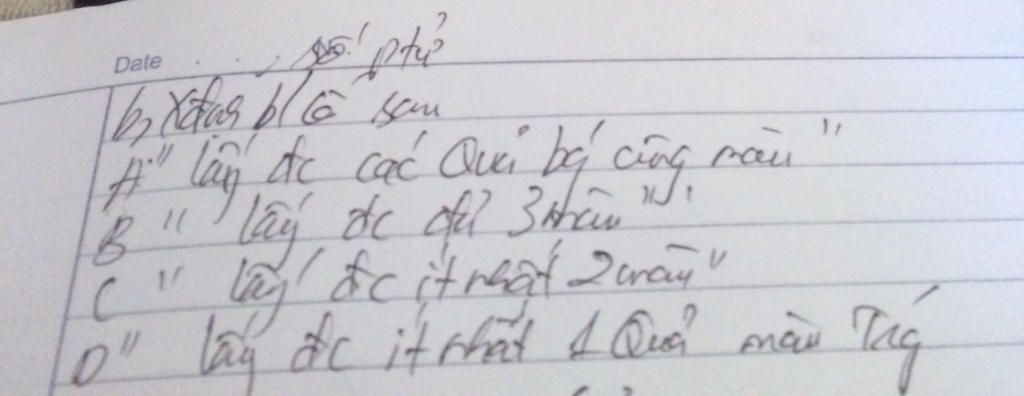 Date số ptử
b, Xđịng b/cố sau
A " lấy đc các Quả bg cùng màu "
B " lấy đc đủ 3 màu "
C " lấy đc ít nhất 2 màu "
D " lấy đc ít nhất 1 Quả màu Trắg